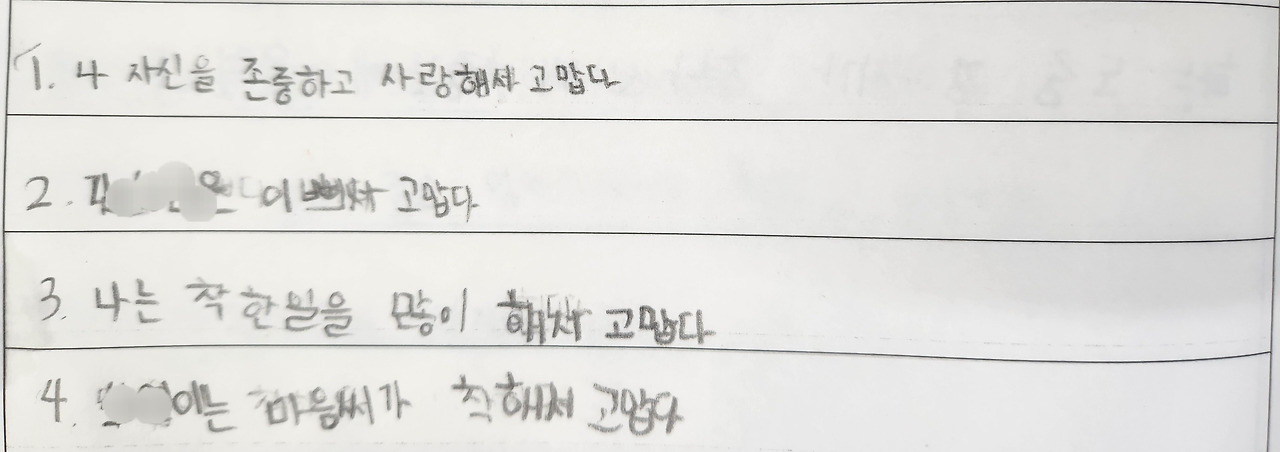 1. 나 자신을 존중하고 사랑해서 고맙다
2. 이뻐서 고맙다
3. 나는 착한일을 많이 해서 고맙다
4. 이는 마음씨가 착해서 고맙다